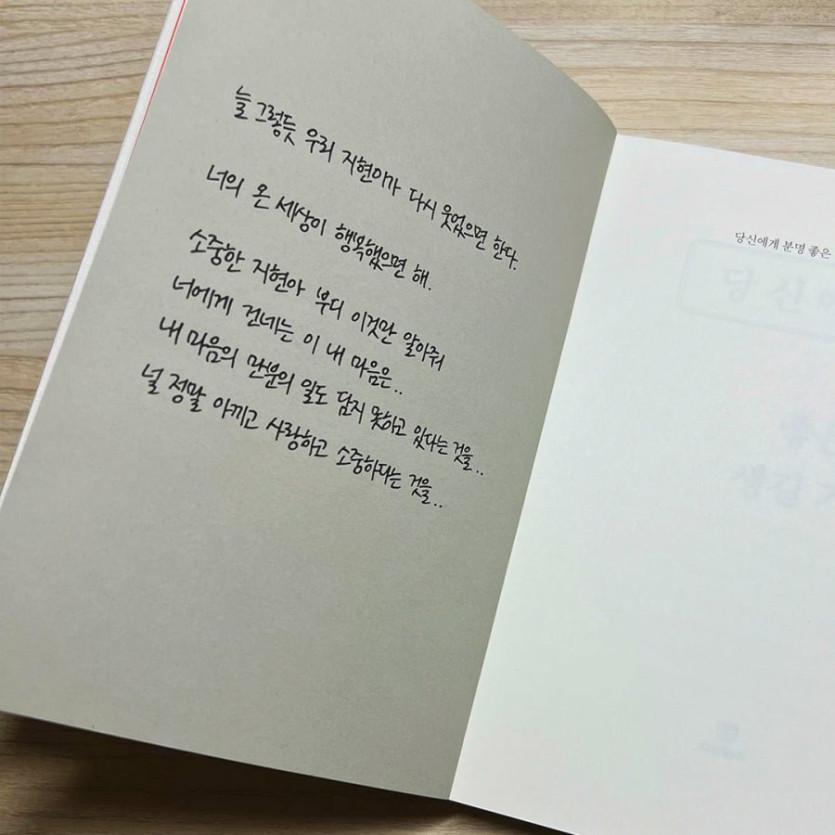 늘 그렇듯 우리 지현이가 다시 웃었으면 한다.
너의 온 세상이 행복했으면 해.
소중한 지현아 부디 이것만 알아줘
너에게 건네는 이 내 마음은..
내 마음의 만분의 일도 담지 못하고 있다는 것을..
널 정말 아끼고 사랑하고 소중하다는 것을..
당신에게 분명 좋은